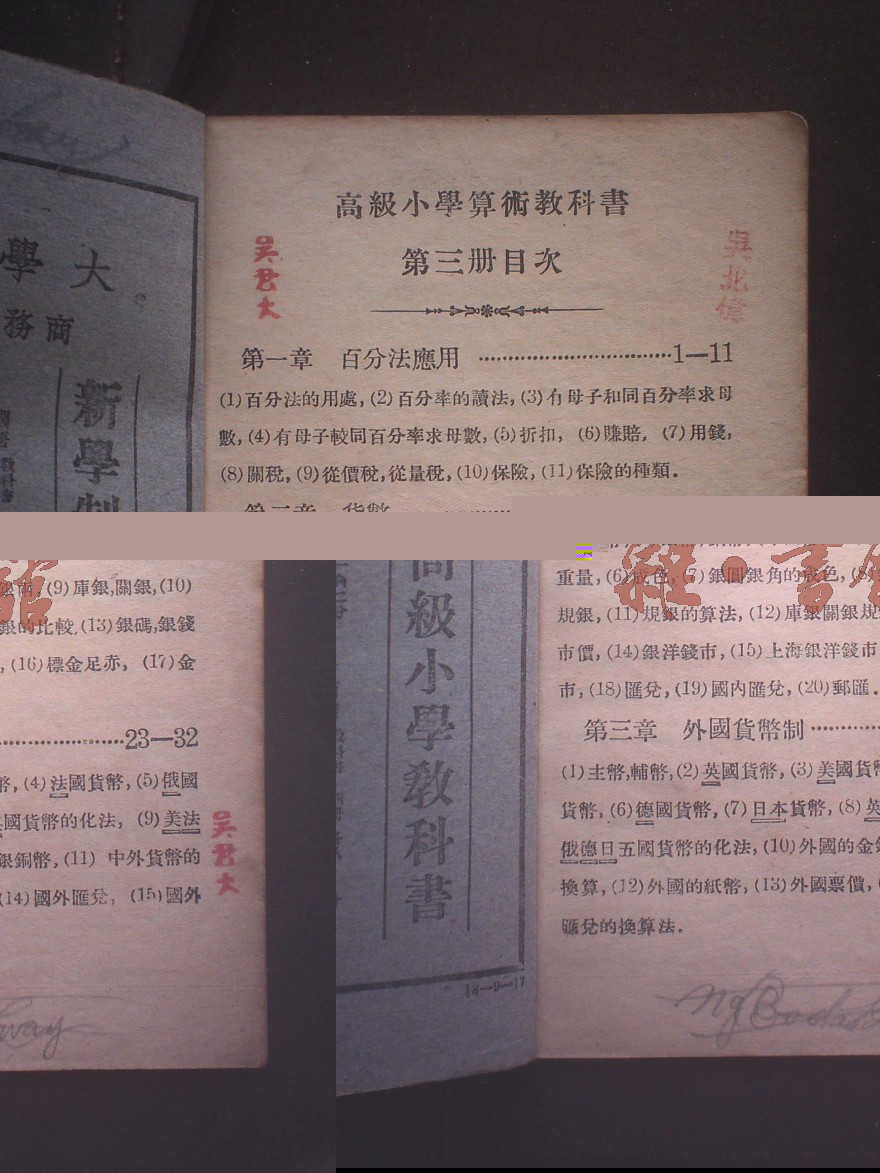 高級小學算術教科書
第三册目次
吳君大
吳北偉
第一章　百分法應用 ································1—11
(1)百分法的用處, (2)百分率的讀法, (3)有母子和同百分率求母
數, (4)有母子較同百分率求母數, (5)折扣, (6)賺賠, (7)用錢,
(8)關稅, (9)從價稅, 從量稅, (10)保險, (11)保險的種類.
第二章　貨幣
大學
商務
新學制
高級小學教科書
18—9—17
重量, (6)成色, (7)銀圓銀角的成色,
規銀, (11)規銀的算法, (12)庫銀關銀規
市價, (14)銀洋錢市, (15)上海銀洋錢市
市, (18)匯兌, (19)國內匯兌, (20)郵匯.
第三章　外國貨幣制
(1)主幣,輔幣, (2)英國貨幣, (3)美國貨幣
貨幣, (6)德國貨幣, (7)日本貨幣, (8)英
俄德日五國貨幣的化法, (10)外國的金銀
換算, (12)外國的紙幣, (13)外國票價,
匯兌的換算法.
(9)庫銀,關銀, (10)
銀的比較, (13)銀碼,銀錢
, (16)標金足赤, (17)金
23—32
幣, (4)法國貨幣, (5)俄國
國貨幣的化法, (9)美法
銀銅幣, (11) 中外貨幣的
(14)國外匯兌, (15)國外
吳君大
書